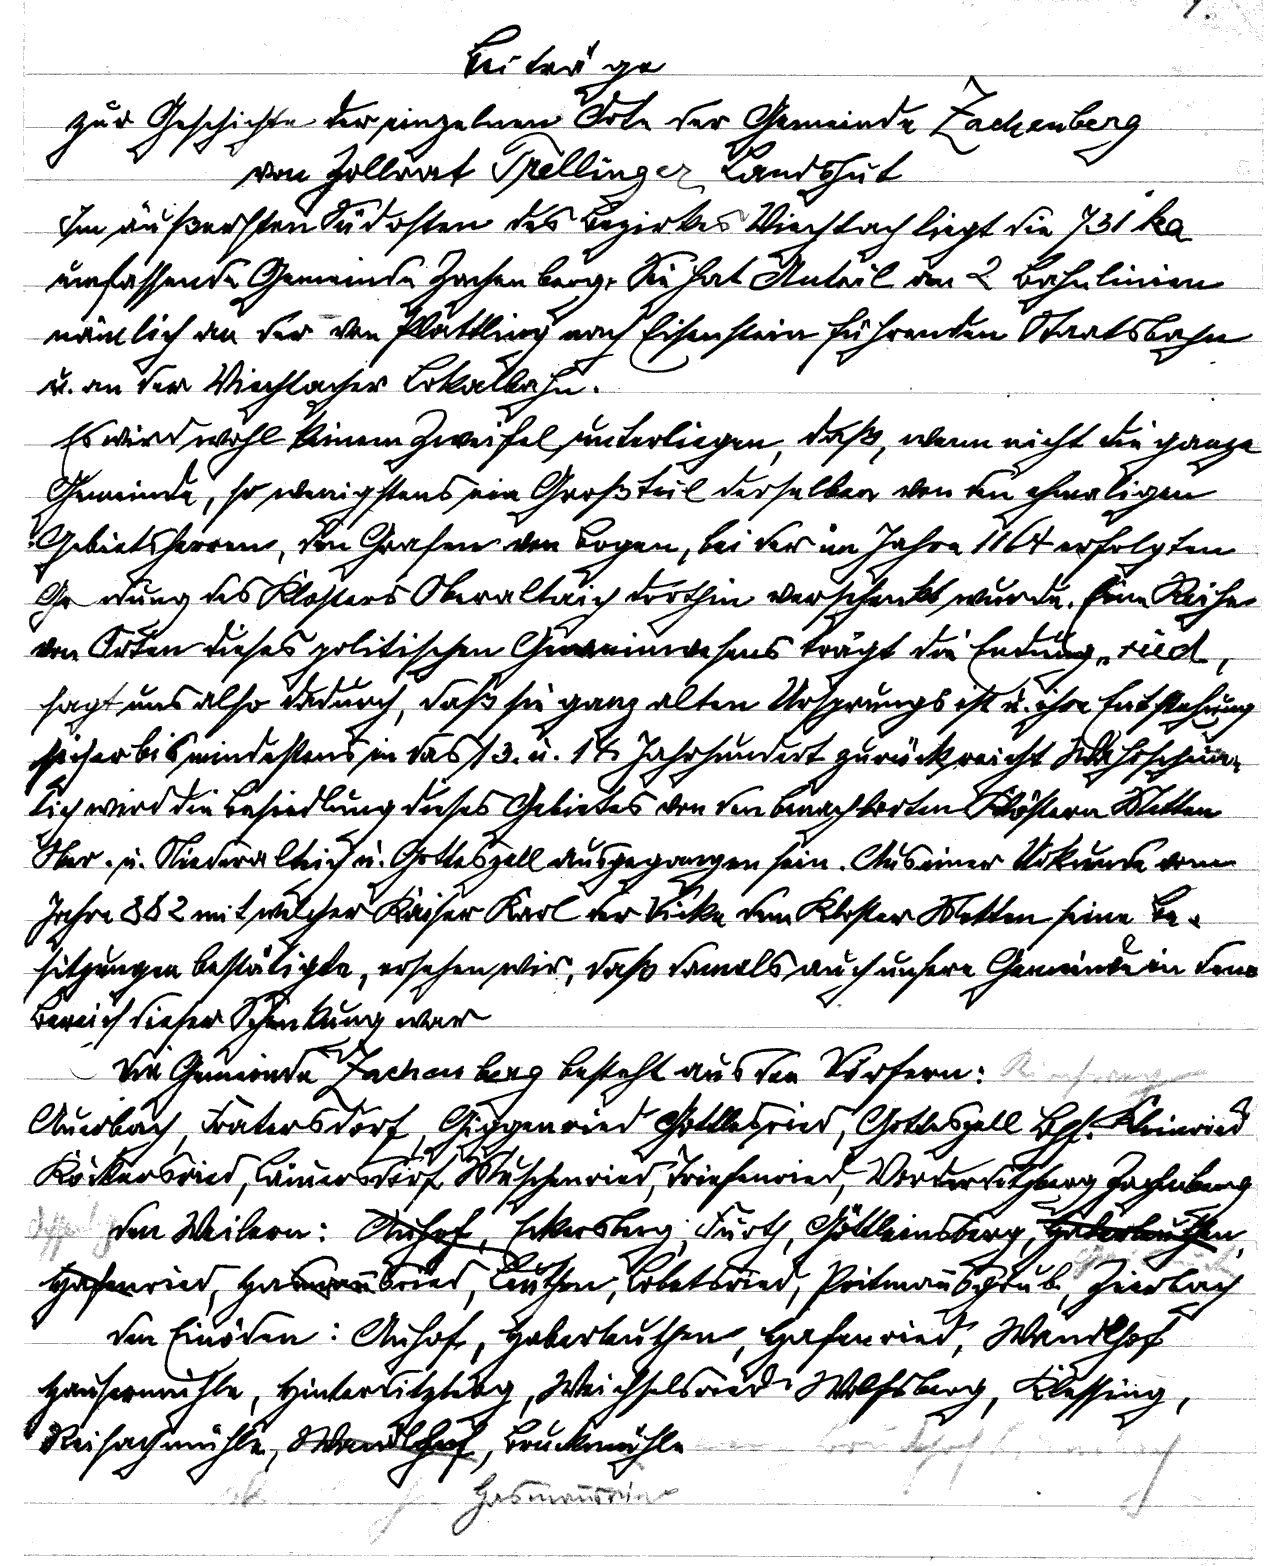 Beiträge
zur Geschichte der einzelnen Orte der Gemeinde Zachenberg
von Zollrat Trellinger Landshut
Im äußersten Südosten des Bezirkes Viechtach liegt die 731 ha
umfassende Gemeinde Zachenberg. Sie hat Anteil an 2 Bahnlinien
nämlich an der von Plattling nach Eisenstein führenden Staatsbahn
u. an der Viechtacher Lokalbahn.
Es wird wohl keinem Zweifel unterliegen, daß, wenn nicht die ganze
Gemeinde, so wenigstens ein Großteil derselben von den ehmaligen
Gebietsherren, den Grafen von Bogen, bei der im Jahre 1104 erfolgten
Gr ndung des Klosters Oberaltaich dorthin verschenkt wurde. Eine Reihe
von Orten dieses politischen Gemeinwesens trägt die Endung "ried,
sagt uns also dadurch, daß sie ganz alten Ursprungs ist u. ihre Entstehung
sicher bis mindestens in das 13. u. 14 Jahrhundert zurückreicht Wahrschein-
lich wird die Besiedlung dieses Gebietes von den benachbarten Klöstern Metten
Ober- u. Niederalteich u. Gotteszell ausgegangen sein. Aus einer Urkunde vom
Jahre 882 mit welcher Kaiser Karl der Dicke dem Kloster Metten seine Be-
sitzungen bestätigte, ersehen wir, daß damals auch unsere Gemeinde in dem
Bereich dieser Schenkung war
Die Gemeinde Zachenberg besteht aus den Dörfern:
Auerbach, Fratersdorf, Giggenried Gottlesried, Gotteszell Bhf. Kleinried
Köckersried, Lämersdorf Muschenried, Triefenried, Vorderditzberg Zachenberg
den Weilern: Auhof, Eckersberg, Furth, Göttleinsberg, Haberleuthen,
Hafenried, Hasmannsried, Leuthen, Lobetsried, Pritmannsgrub, Zierbach
den Einöden: Auhof, Haberleuthen, Hafenried, Wandlhof
Hausermühle, Hinterditzberg, Weichselsried Wolfsberg, Klessing,
Reisachmühle, Wandlhof, Bruckmühle